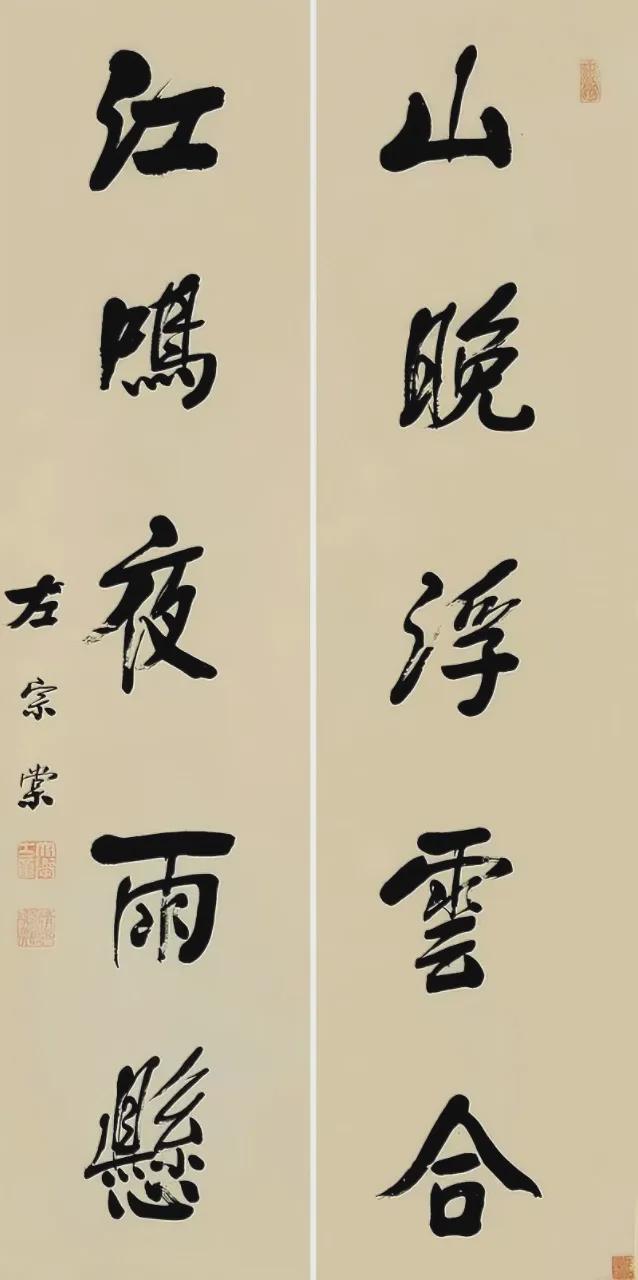 山晚浮雲合
江鳴夜雨懸
左宗棠